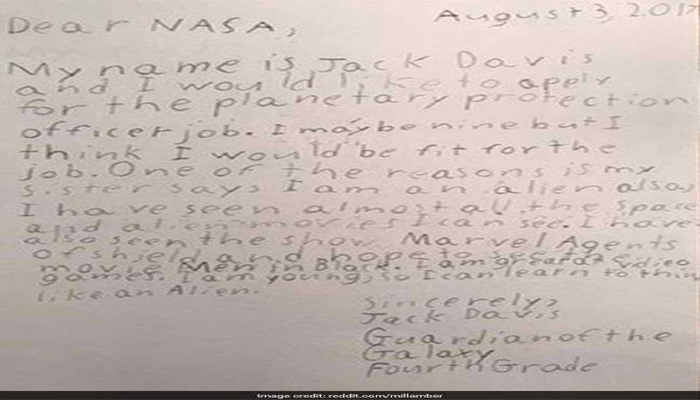 August 3, 2017
Dear NASA,
My name is Jack Davis
and I would like to apply
for the planetary protection
officer job. I may be nine but I
think I would be fit for the
job. One of the reasons is my
sister says I am an alien also,
I have seen almost all the space
and alien movies I can see. I have
also seen the show Marvel Agents
of Shield and hope to see the
movie Men in Black. I am great at vidieo
games. I am young, so I can learn to think
like an Alien.
Sincerely,
Jack Davis
Guardian of the
Galaxy
Fourth Grade
Image credit: reddit.com/millamber